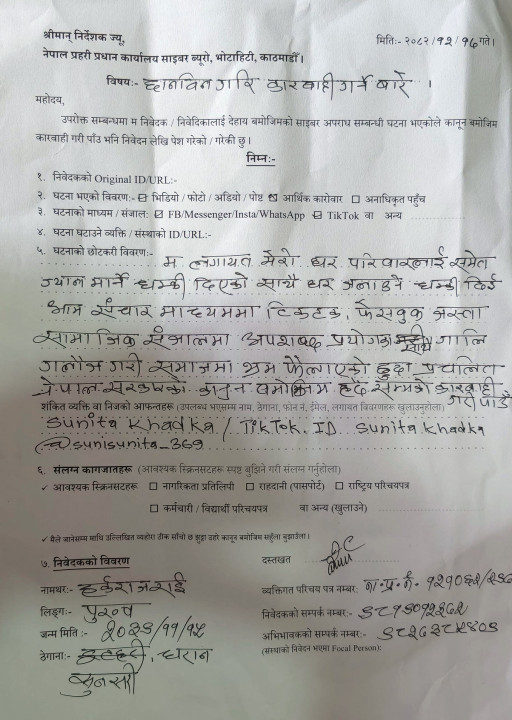 श्रीमान् निर्देशक ज्यू,
मितिः- २०८२/१२/१६ गते।
नेपाल प्रहरी प्रधान कार्यालय साइबर ब्यूरो, भोटाहिटी, काठमाडौँ।
विषयः- छानविन गरि कारवाही गर्ने बारे ।
महोदय,
उपरोक्त सम्बन्धमा म निवेदक / निवेदिकालाई देहाय बमोजिमको साइबर अपराध सम्बन्धी घटना भएकोले कानून बमोजिम
कारवाही गरी पाँउ भनि निवेदन लेखि पेश गरेको / गरेकी छु।
निम्नः-
१. निवेदकको Original ID/URL:-
२. घटना भएको विवरणः- ☑ भिडियो / फोटो / अडियो / पोष्ट ☑ आर्थिक कारोवार ☐ अनाधिकृत पहुँच
३. घटनाको माध्यम / संजालः ☑ FB/Messenger/Insta/WhatsApp ☑ TikTok वा अन्य
४. घटना घटाउने व्यक्ति / संस्थाको ID/URL:-
५. घटनाको छोटकरी विवरणः- म लगायत मेरो घर परिवारलाई समेत
ज्यान मार्ने धम्की दिएको साथै घर जलाउने धम्की दिई
आम संचार माध्यममा टिकटक, फेसबुक जस्ता
सामाजिक संजालमा अपशब्द प्रयोग साथै गालि
गलौज गरी समाजमा भ्रम फैलाएको हुदा प्रचलित
नेपाल सरकारको कानुन बमोजिम हदै सम्मको कारवाही
गरी पाउँ
शंकित व्यक्ति वा निजको आफन्तः (उपलब्ध भएसम्म नाम, ठेगाना, फोन नं, ईमेल, लगायत विवरणहरू खुलाउनुहोला)
Sunita Khadka / TikTok. ID Sunita Khadka
@sunisunita_369
६. संलग्न कागजातहरू (आवश्यक स्क्रिनसटहरू स्पष्ट बुझिने गरी संलग्न गर्नुहोला)
✓ आवश्यक स्क्रिनसटहरू ☐ नागरिकता प्रतिलिपी ☐ राहदानी (पासपोर्ट) ☐ राष्ट्रिय परिचयपत्र
☐ कर्मचारी / विद्यार्थी परिचयपत्र वा अन्य (खुलाउने)
✓ मैले जानेसम्म माथि उल्लिखित व्यहोरा ठीक साँचो छ झुट्ठा ठहरे कानून बमोजिम सहुँला बुझाउँला।
७. निवेदकको विवरण
दस्तखत
नामथरः- हर्कराज राई
व्यक्तिगत परिचय पत्र नम्बरः ना.प्र.नं.
लिङ्गः- पुरुष
निवेदकको सम्पर्क नम्बरः-
जन्म मितिः- २०३६/११/१५
अभिभावकको सम्पर्क नम्बरः-
(संस्थाको निवेदन भएमा Focal Person):
ठेगानाः- धरान
सुनसरी